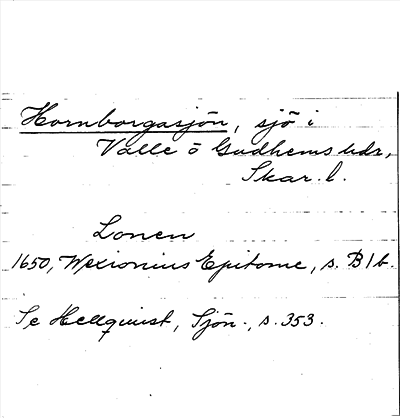 Hornborgasjön, sjö i
Valle o Gudhems hdr,
Skar. l.
Lonen
1650, Wexionius Epitome, s. B1b.
Se Hellquist, Sjön., s. 353.